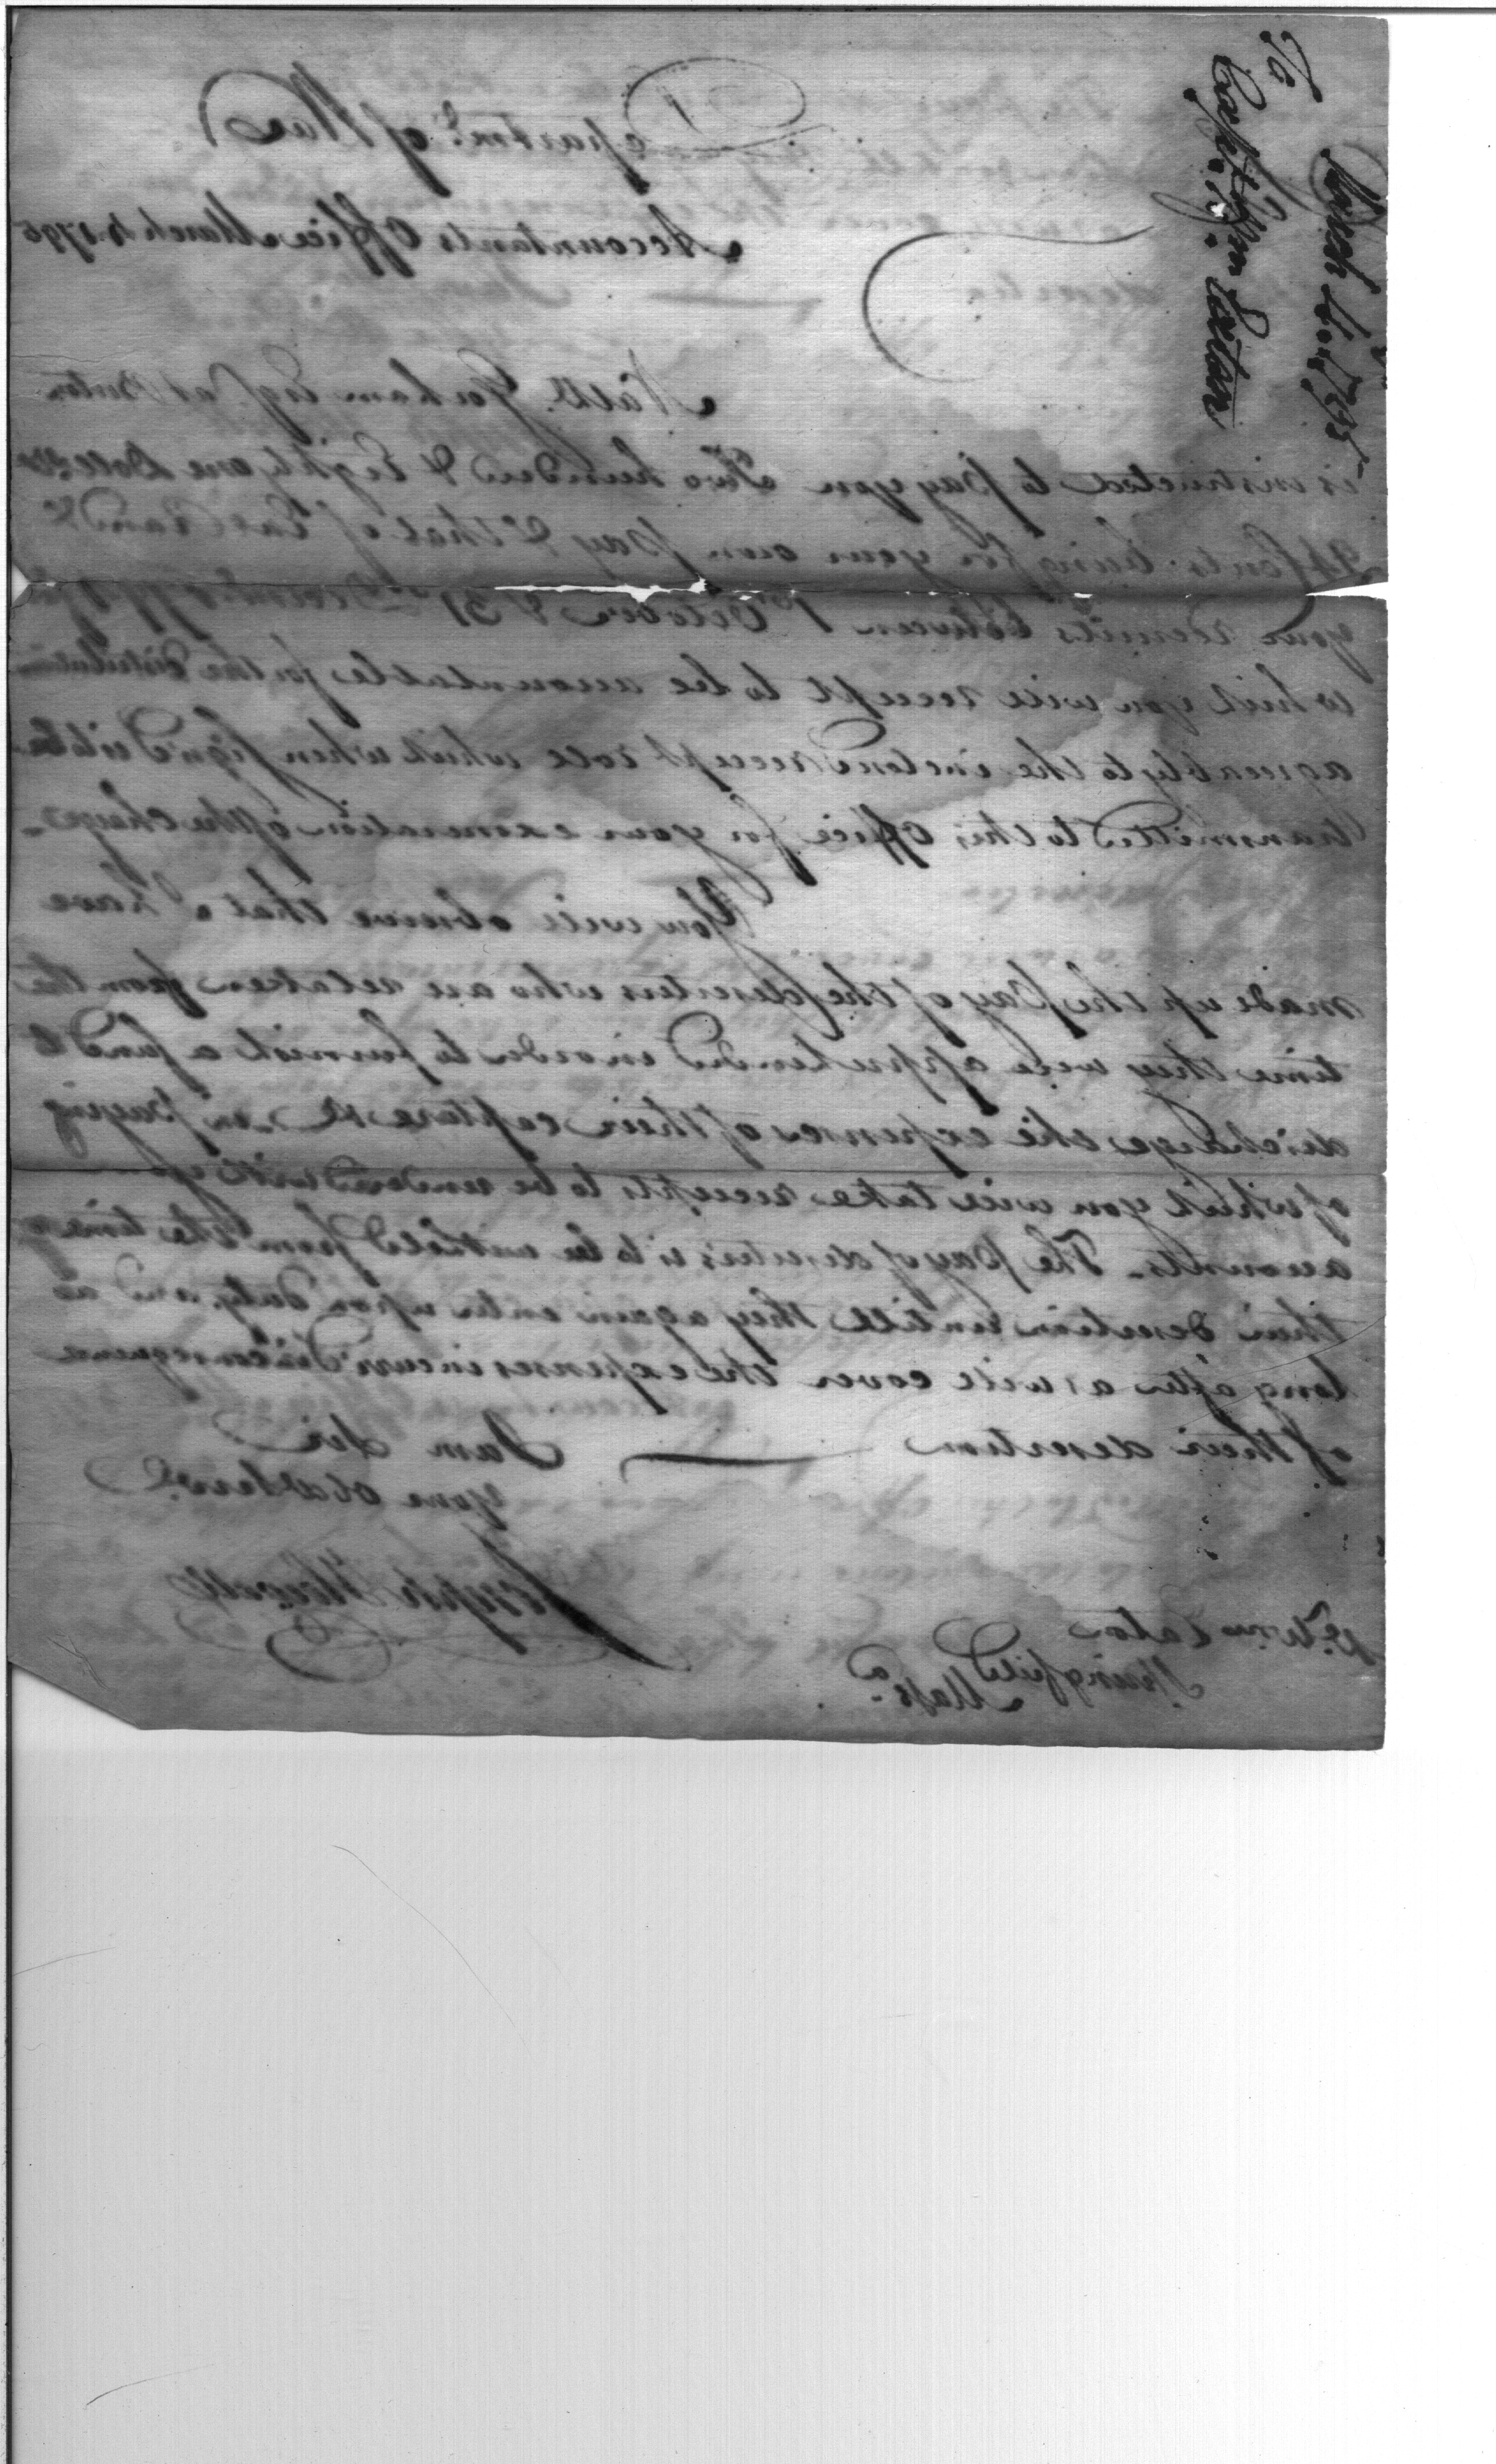 To
Capt. Wm Eaton
March 4. 1795
Departmt. of War
Accountants Office March 4 1795
Sir
Nathl. Gorham Esqr. at Boston
is instructed to pay you Two hundred & Eighty one Dollars
94 Cents being for your own pay & that of Eal Rand &
your recruits between 1st October & 31st Decemr 1794 for
which you will receipt to be accountable for the distribution
agreeably to the inclosed receipt role which when sign'd will be
transmitted to this Office for your exoneration of the charge -
You will observe that I have
made up the pay of the deserters who are retaken from the
time they were apprehended in order to furnish a fund to
discharge the expenses of their capture &c in paying
of which you will take receipts to be rendered with yr
accounts - The pay of deserters is to be withheld from the time of
their desertion untill they again enter upon duty, and as
long after as will cover the expenses incurr'd in consequence
of their desertion
I am Sir
Your obdt servt.
Joseph Howell
Wm Eaton
Springfield
Massa.